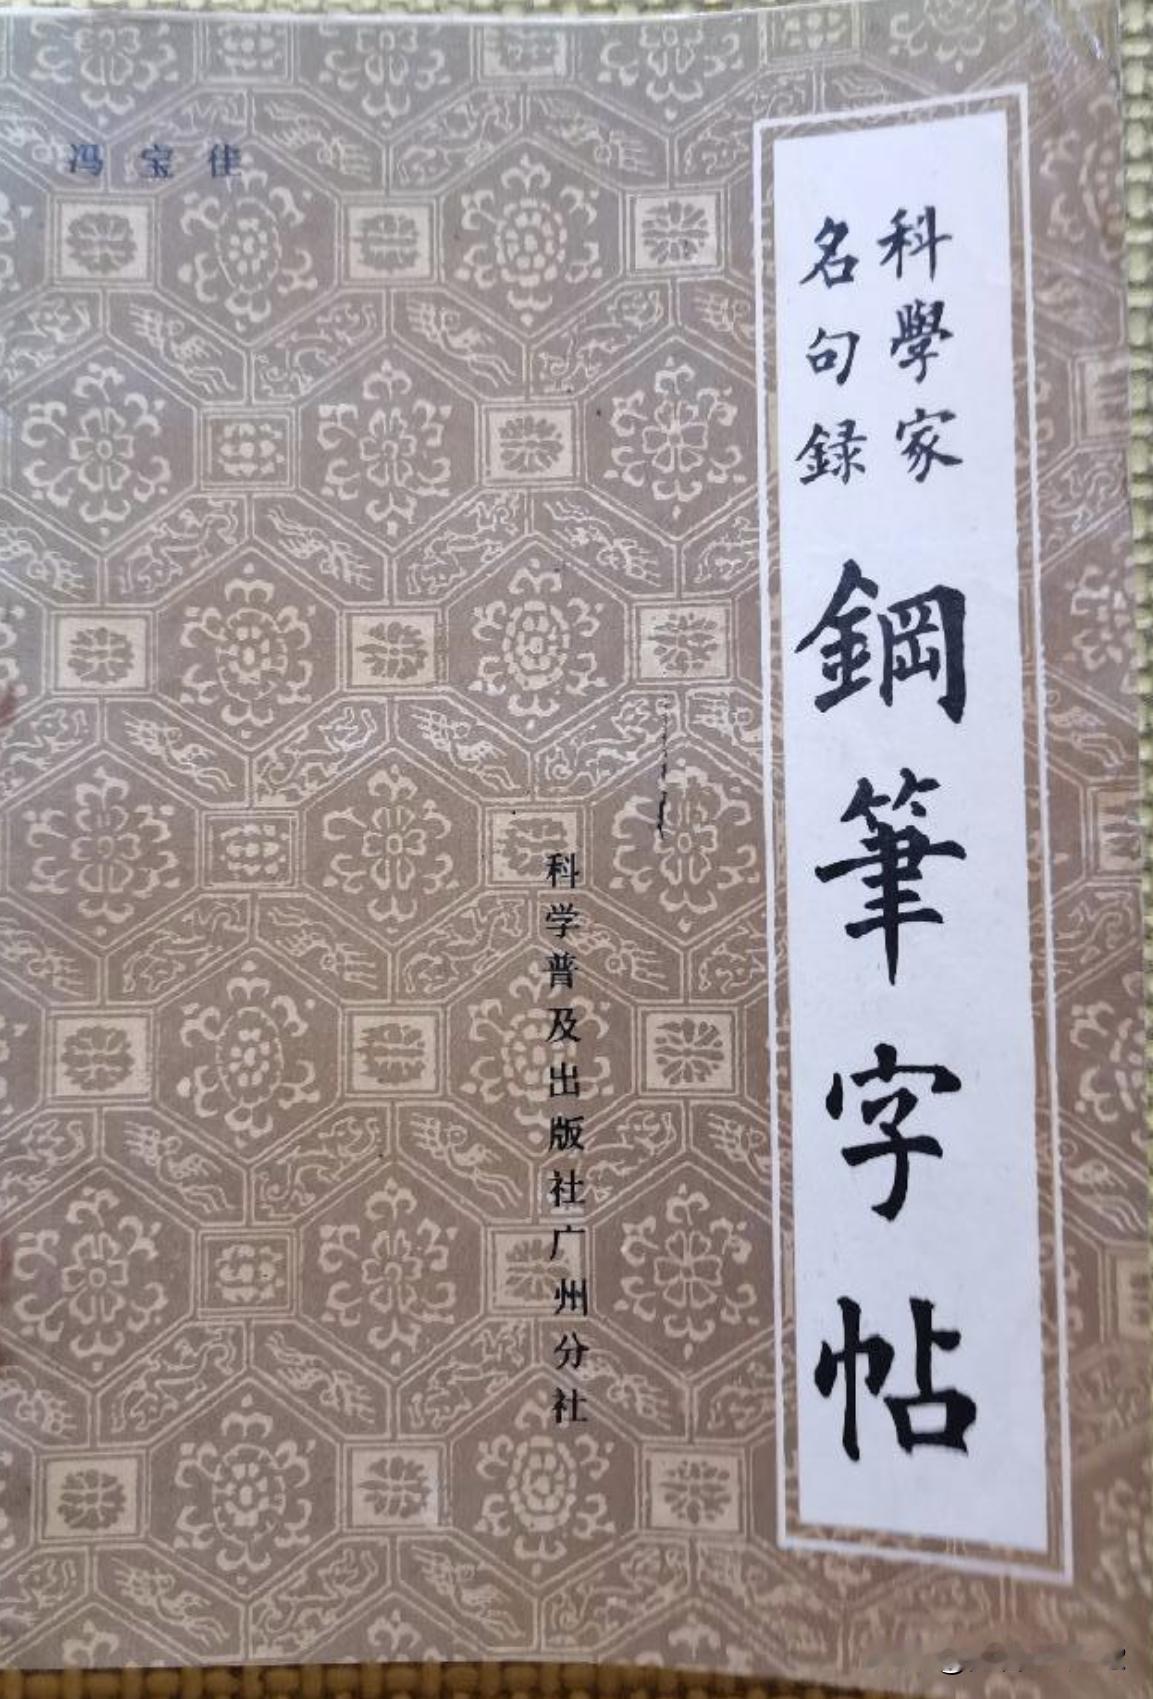 科學家
名句録
鋼筆字帖
冯宝佳
科学普及出版社广州分社